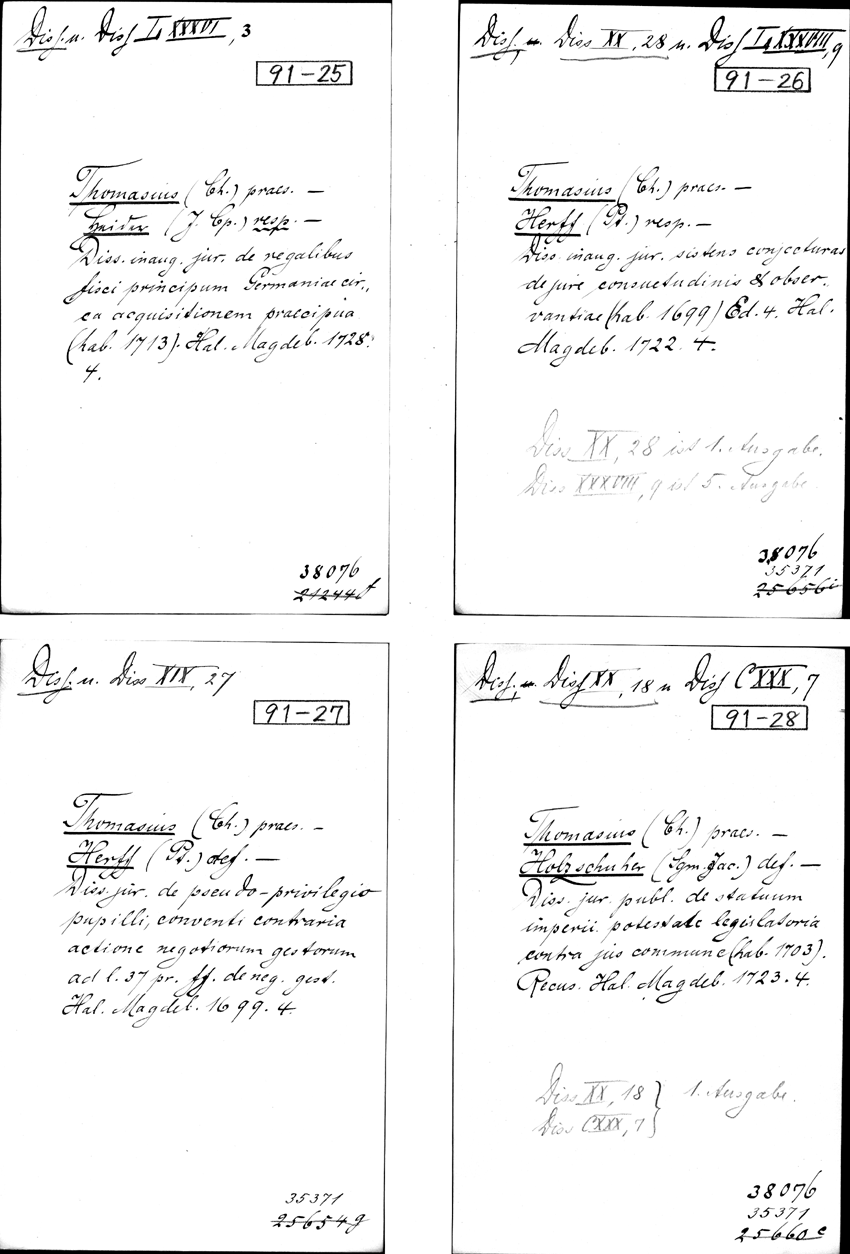 Diss. u. Diss LXXXVI, 3
91-25
Thomasius (Ch.) praes. —
Heider (J. Cp.) resp. —
Diss. inaug. jur. de regalibus
fisci principum Germaniae cir-
ca acquisitionem praecipua
(hab. 1713). Hal. Magdeb. 1728.
4.
38076
21244f
Diss. u. Diss XX, 28 u. Diss LXXXVIII, 9
91-26
Thomasius (Ch.) praes. —
Herff (Pt.) resp. —
Diss. inaug. jur. sistens conjecturas
de jure consuetudinis & obser-
vantiae (hab. 1699) Ed. 4. Hal.
Magdeb. 1722. 4.
Diss XX, 28 ist 1. Ausgabe.
Diss XXXVIII, 9 ist 5. Ausgabe.
38076
35371
25656i
Diss. u. Diss XIX, 27
91-27
Thomasius (Ch.) praes. —
Herff (Pt.) def. —
Diss. jur. de pseudo-privilegio
pupilli, conventi contraria
actione negotiorum gestorum
ad l. 37 pr. ff. de neg. gest.
Hal. Magdeb. 1699. 4.
35371
25654g
Diss. u. Diss XX, 18 u Diss CXXX, 7
91-28
Thomasius (Ch.) praes. —
Holzschuher (Sgm. Jac.) def. —
Diss. jur. publ. de statuum
imperii potestate legislatoria
contra jus commune (hab. 1703).
Recus. Hal. Magdeb. 1723. 4.
Diss XX, 18 } 1. Ausgabe.
Diss CXXX, 7
38076
35371
25660c